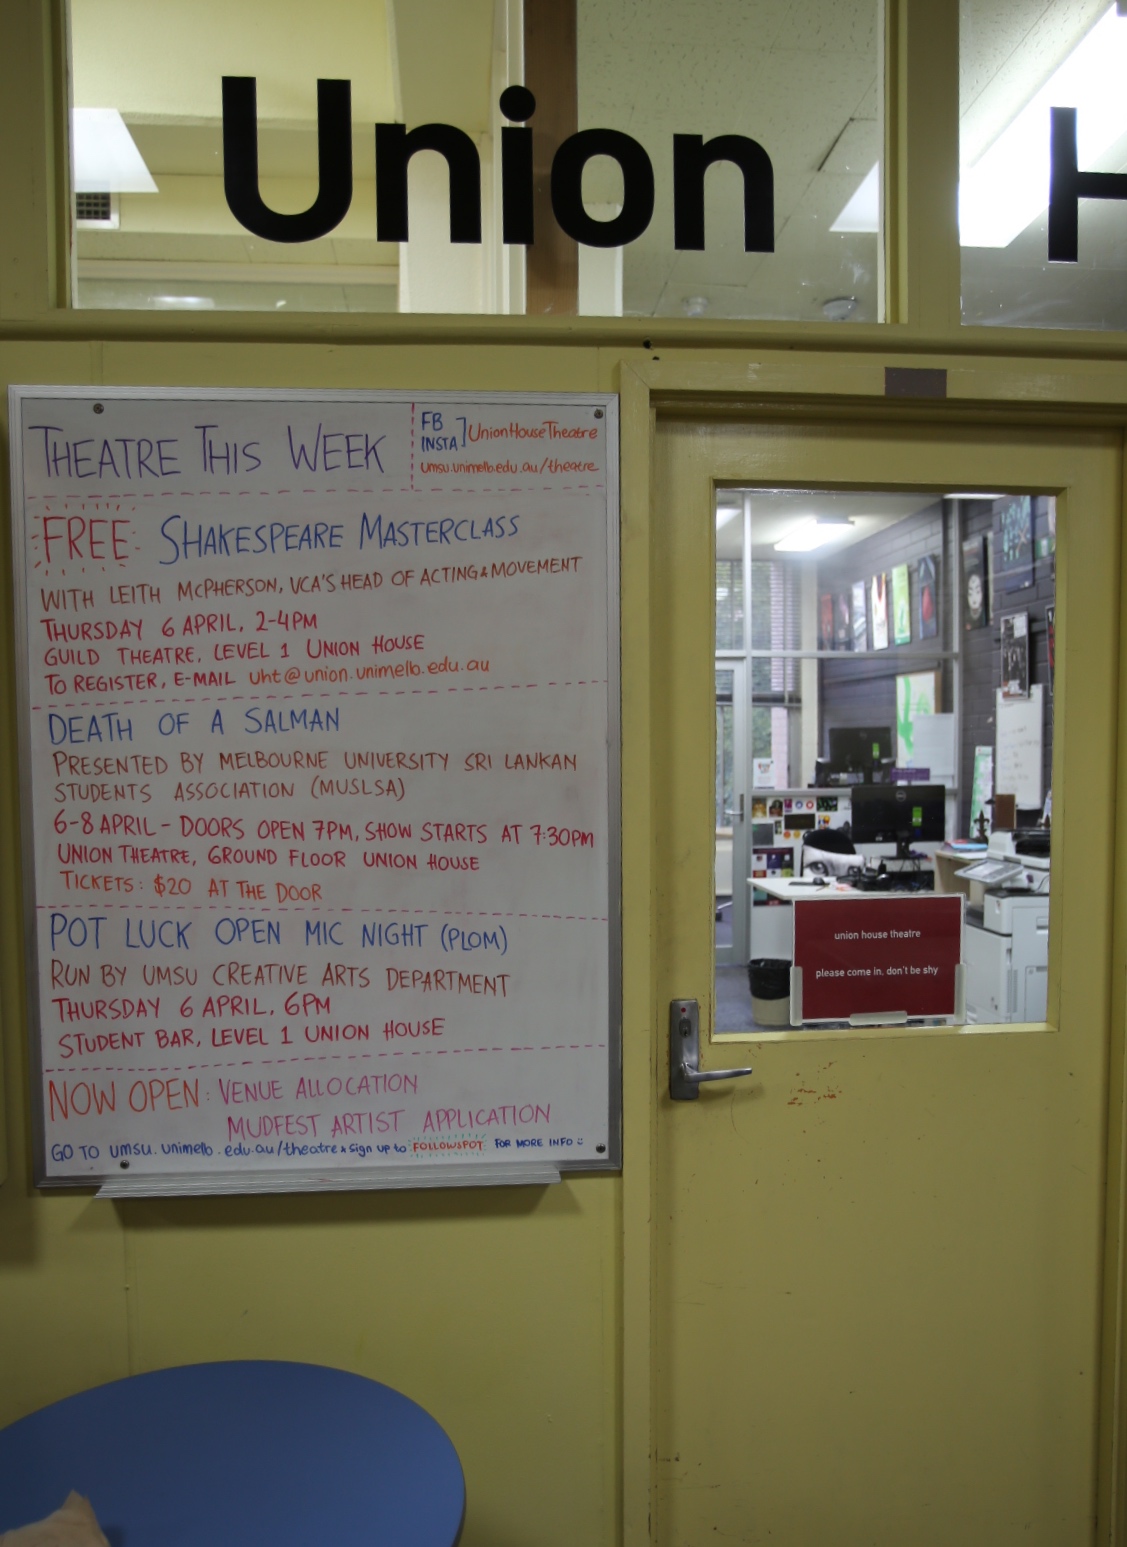 Union H
THEATRE THIS WEEK
FB
INSTA ] UnionHouseTheatre
umsu.unimelb.edu.au/theatre
FREE SHAKESPEARE MASTERCLASS
WITH LEITH MCPHERSON, VCA'S HEAD OF ACTING & MOVEMENT
THURSDAY 6 APRIL, 2-4PM
GUILD THEATRE, LEVEL 1 UNION HOUSE
TO REGISTER, E-MAIL uht@union.unimelb.edu.au
DEATH OF A SALMAN
PRESENTED BY MELBOURNE UNIVERSITY SRI LANKAN
STUDENTS ASSOCIATION (MUSLSA)
6-8 APRIL - DOORS OPEN 7PM, SHOW STARTS AT 7:30PM
UNION THEATRE, GROUND FLOOR UNION HOUSE
TICKETS: $20 AT THE DOOR
POT LUCK OPEN MIC NIGHT (PLOM)
RUN BY UMSU CREATIVE ARTS DEPARTMENT
THURSDAY 6 APRIL, 6PM
STUDENT BAR, LEVEL 1 UNION HOUSE
NOW OPEN: VENUE ALLOCATION
MUDFEST ARTIST APPLICATION
GO TO umsu.unimelb.edu.au/theatre & sign up to FOLLOWSPOT FOR MORE INFO :)
union house theatre
please come in, don't be shy